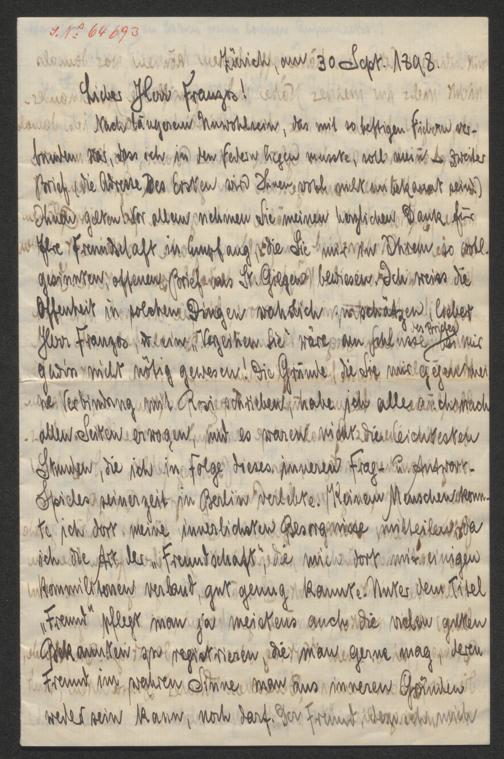 J. No 64693
Zürich, am 30 Sept. 1898.
Lieber Herr Franzos!
Nach längerem Unwohlsein, das mit so heftigem Fiebern ver-
bunden war, dass ich in den Federn liegen musste, soll mein 2. zweiter
Brief (die Adresse des Ersten wird Ihnen wohl nicht unbekannt sein)
Ihnen gelten. Vor allem nehmen Sie meinen herzlichen Dank für
Ihre Freundschaft in Empfang, die Sie mir in Ihrem so wohl-
gesinnten, offenen Brief aus St. bewiesen. Ich weiss die
Offenheit in solchen Dingen wahrlich zu schätzen, lieber
Herr Franzos, & ein „Vergeihen Sie" wäre am Schlusse des Briefes mir
gewiss nicht nötig gewesen! Die Gründe, die Sie mir gegen
Verbindung mit Rosi schrieben, habe ich alle auch nach
allen Seiten erwogen, und es waren nicht die leichtesten
Stunden, die ich in Folge dieses inneren Frag- u. Antwort-
Spieles seinerzeit in Berlin verlebte. Keinem Menschen konn-
te ich dort meine innerlichsten Besorgnisse mitteilen, da
ich die Art der „Freundschaft", die mich dort mit einigen
Kommilitonen verband gut genug kannte. Unter dem Titel
„Freund" pflegt man ja meistens auch die vielen guten
Bekannten zu registrieren, die man gerne mag, deren
Freund im wahren Sinne man aus inneren Gründen
weder sein kann, noch darf. Der Freund, dem ich mich